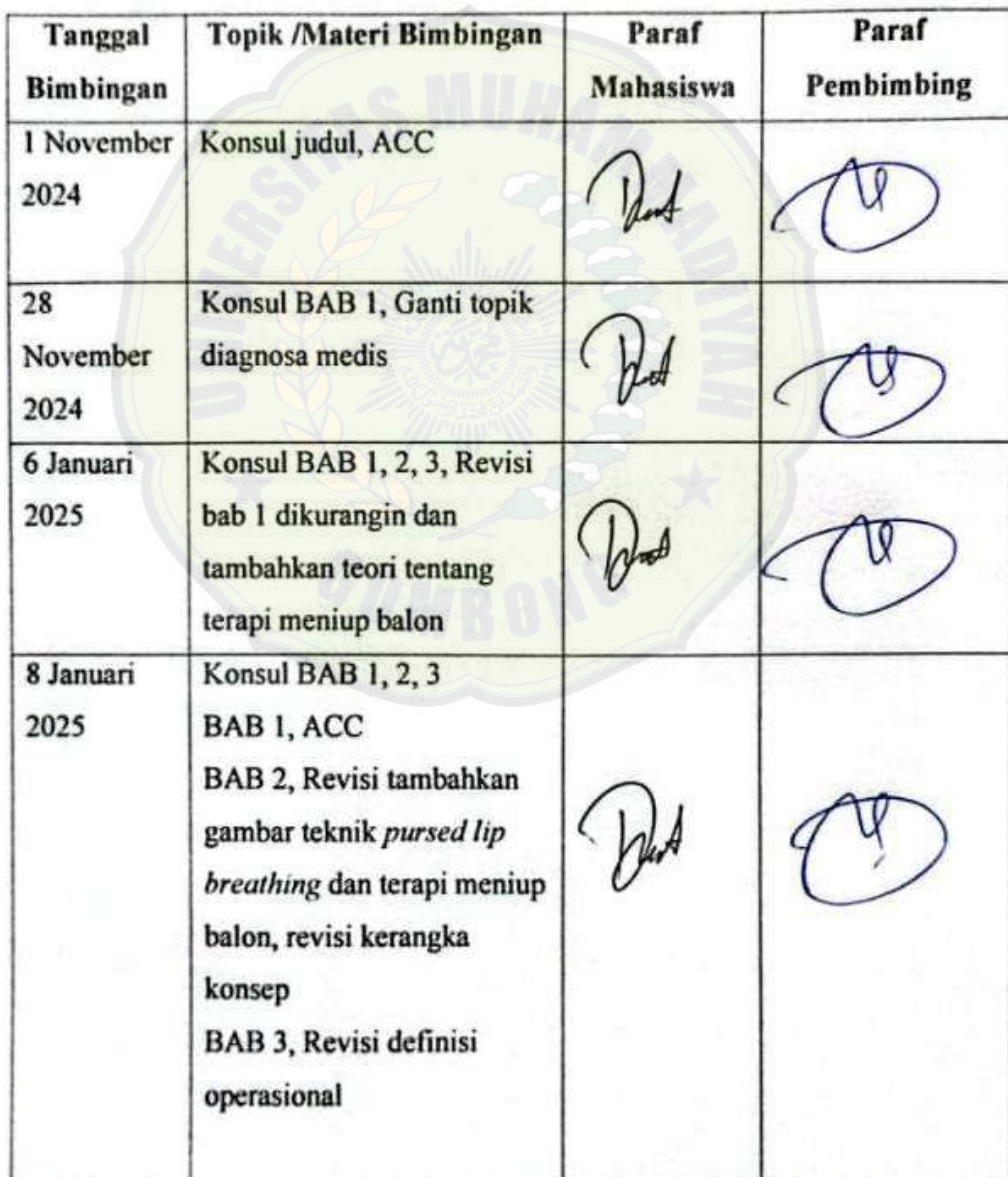 Tanggal Bimbingan
Topik /Materi Bimbingan
Paraf Mahasiswa
Paraf Pembimbing
1 November
2024
Konsul judul, ACC
28
November
2024
Konsul BAB 1, Ganti topik
diagnosa medis
6 Januari
2025
Konsul BAB 1, 2, 3, Revisi
bab 1 dikurangin dan
tambahkan teori tentang
terapi meniup balon
8 Januari
2025
Konsul BAB 1, 2, 3
BAB 1, ACC
BAB 2, Revisi tambahkan
gambar teknik pursed lip
breathing dan terapi meniup
balon, revisi kerangka
konsep
BAB 3, Revisi definisi
operasional
UNIVERSITAS MUHAMMADIYAH
GOMBONG